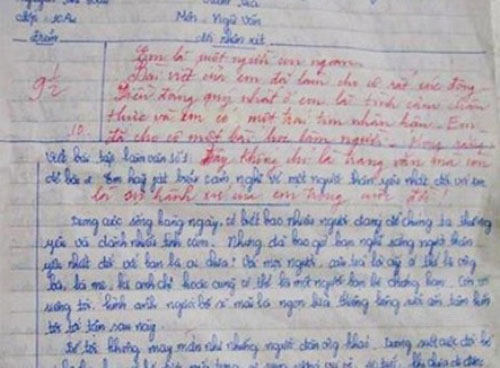 Lớp: 10A
Môn: Ngữ văn
Điểm
Lời nhận xét
9 1/2
10
Em là một người con ngoan.
Bài viết của em đã làm cho cô rất xúc động.
Điều đáng quý nhất ở em là tình cảm chân
thực và em có một trái tim nhân hậu. Em
đã cho cô một bài học làm người. Mong rằng
Viết bài tập làm văn số 1: Đây không chỉ là trang văn mà còn
Đề bài: Em hãy phát biểu cảm nghĩ về một người thân yêu nhất đối với em
là sự hành xử của em trong cuộc đời!
Trong cuộc sống hàng ngày, có biết bao nhiêu người đáng để chúng ta thương
yêu và dành nhiều tình cảm. Nhưng đã bao giờ bạn nghĩ rằng người thân
yêu nhất đối với bạn là ai chưa? Với mọi người, câu trả lời ấy có thể là ông
bà, là mẹ, là anh chị hoặc cũng có thể là một người bạn bè chẳng hạn. Còn
riêng tôi, hình ảnh người bố sẽ mãi là ngọn lửa thiêng liêng sưởi ấm tâm hồn
tôi tới tận sau này.
Bố tôi không may mắn như những người đàn ông khác. Trong suốt cuộc đời bố